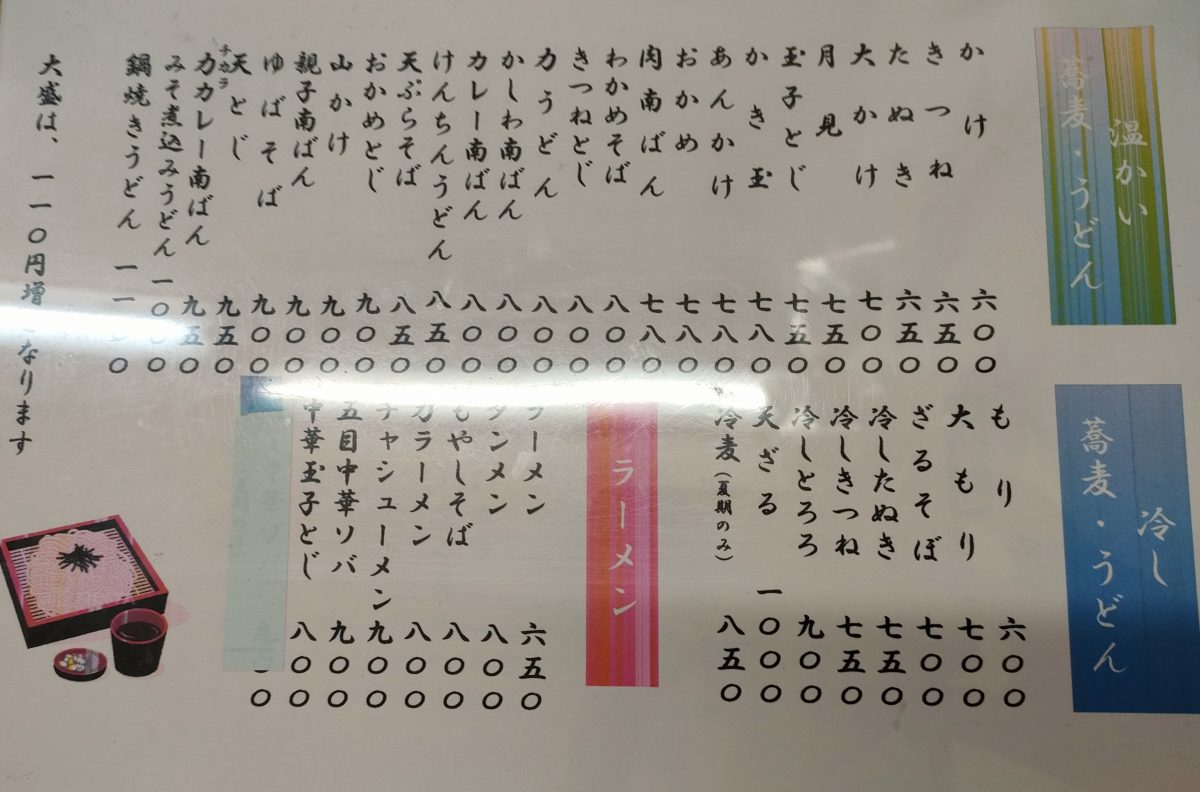 温かい
蕎麦・うどん
かけ 六〇〇
きつね 六五〇
たぬき 六五〇
大かけ 七〇〇
月見 七五〇
玉子とじ 七五〇
かき玉 七八〇
あんかけ 七八〇
おかめ 七八〇
肉南ばん 七八〇
わかめそば 八〇〇
きつねとじ 八〇〇
力うどん 八〇〇
かしわ南ばん 八〇〇
カレー南ばん 八〇〇
けんちんうどん 八五〇
天ぷらそば 八五〇
おかめとじ 九〇〇
山かけ 九〇〇
親子南ばん 九〇〇
ゆばそば 九〇〇
天とじ 九五〇
チカラ
力カレー南ばん 九五〇
みそ煮込みうどん 一〇〇〇
鍋焼きうどん 一一〇〇
大盛は、一一〇円増となります
冷し
蕎麦・うどん
もり 六〇〇
大もり 七〇〇
ざるそば 七〇〇
冷したぬき 七五〇
冷しきつね 七五〇
冷しとろろ 九〇〇
天ざる 一〇〇〇
冷麦（夏期のみ） 八五〇
ラーメン
ラーメン 六五〇
タンメン 八〇〇
もやしそば 八〇〇
力ラーメン 八〇〇
チャシューメン 九〇〇
五目中華ソバ 九〇〇
中華玉子とじ 八〇〇